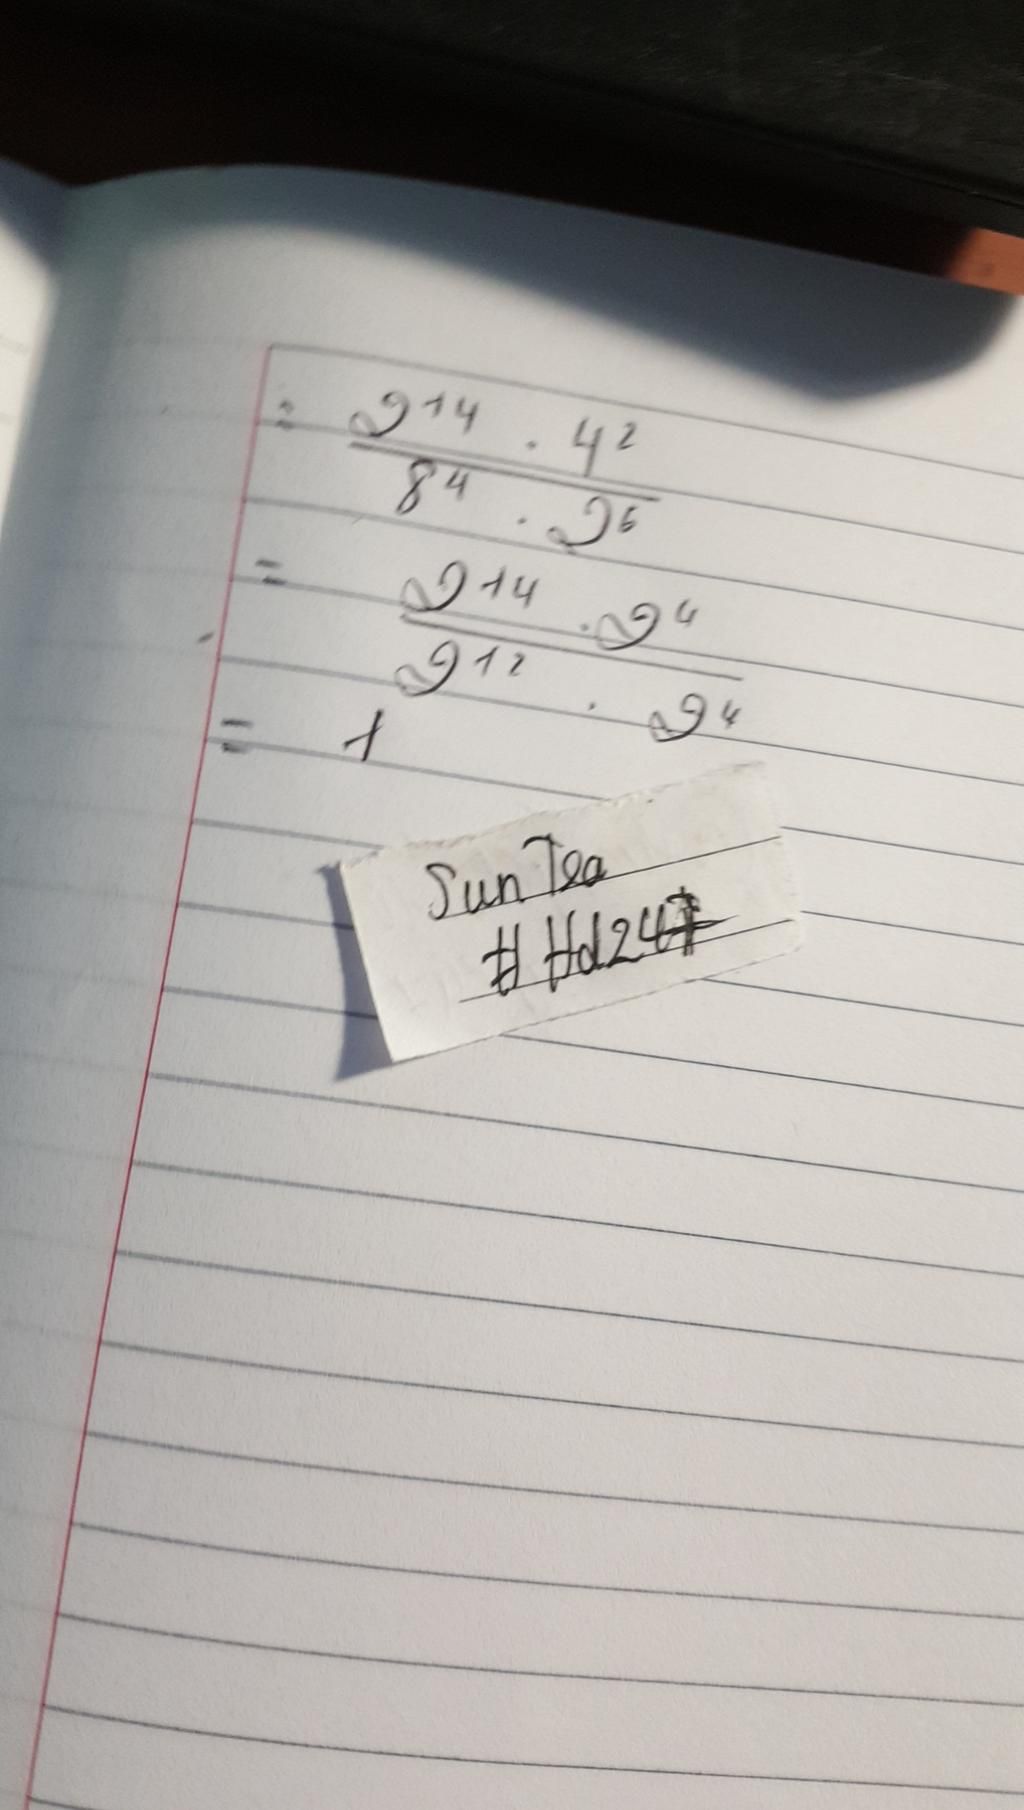 = 2^14 . 4^2
8^4 . 2^6
= 2^14 . 2^4
2^12 . 2^4
= 1
Sun Tea
# Hd247